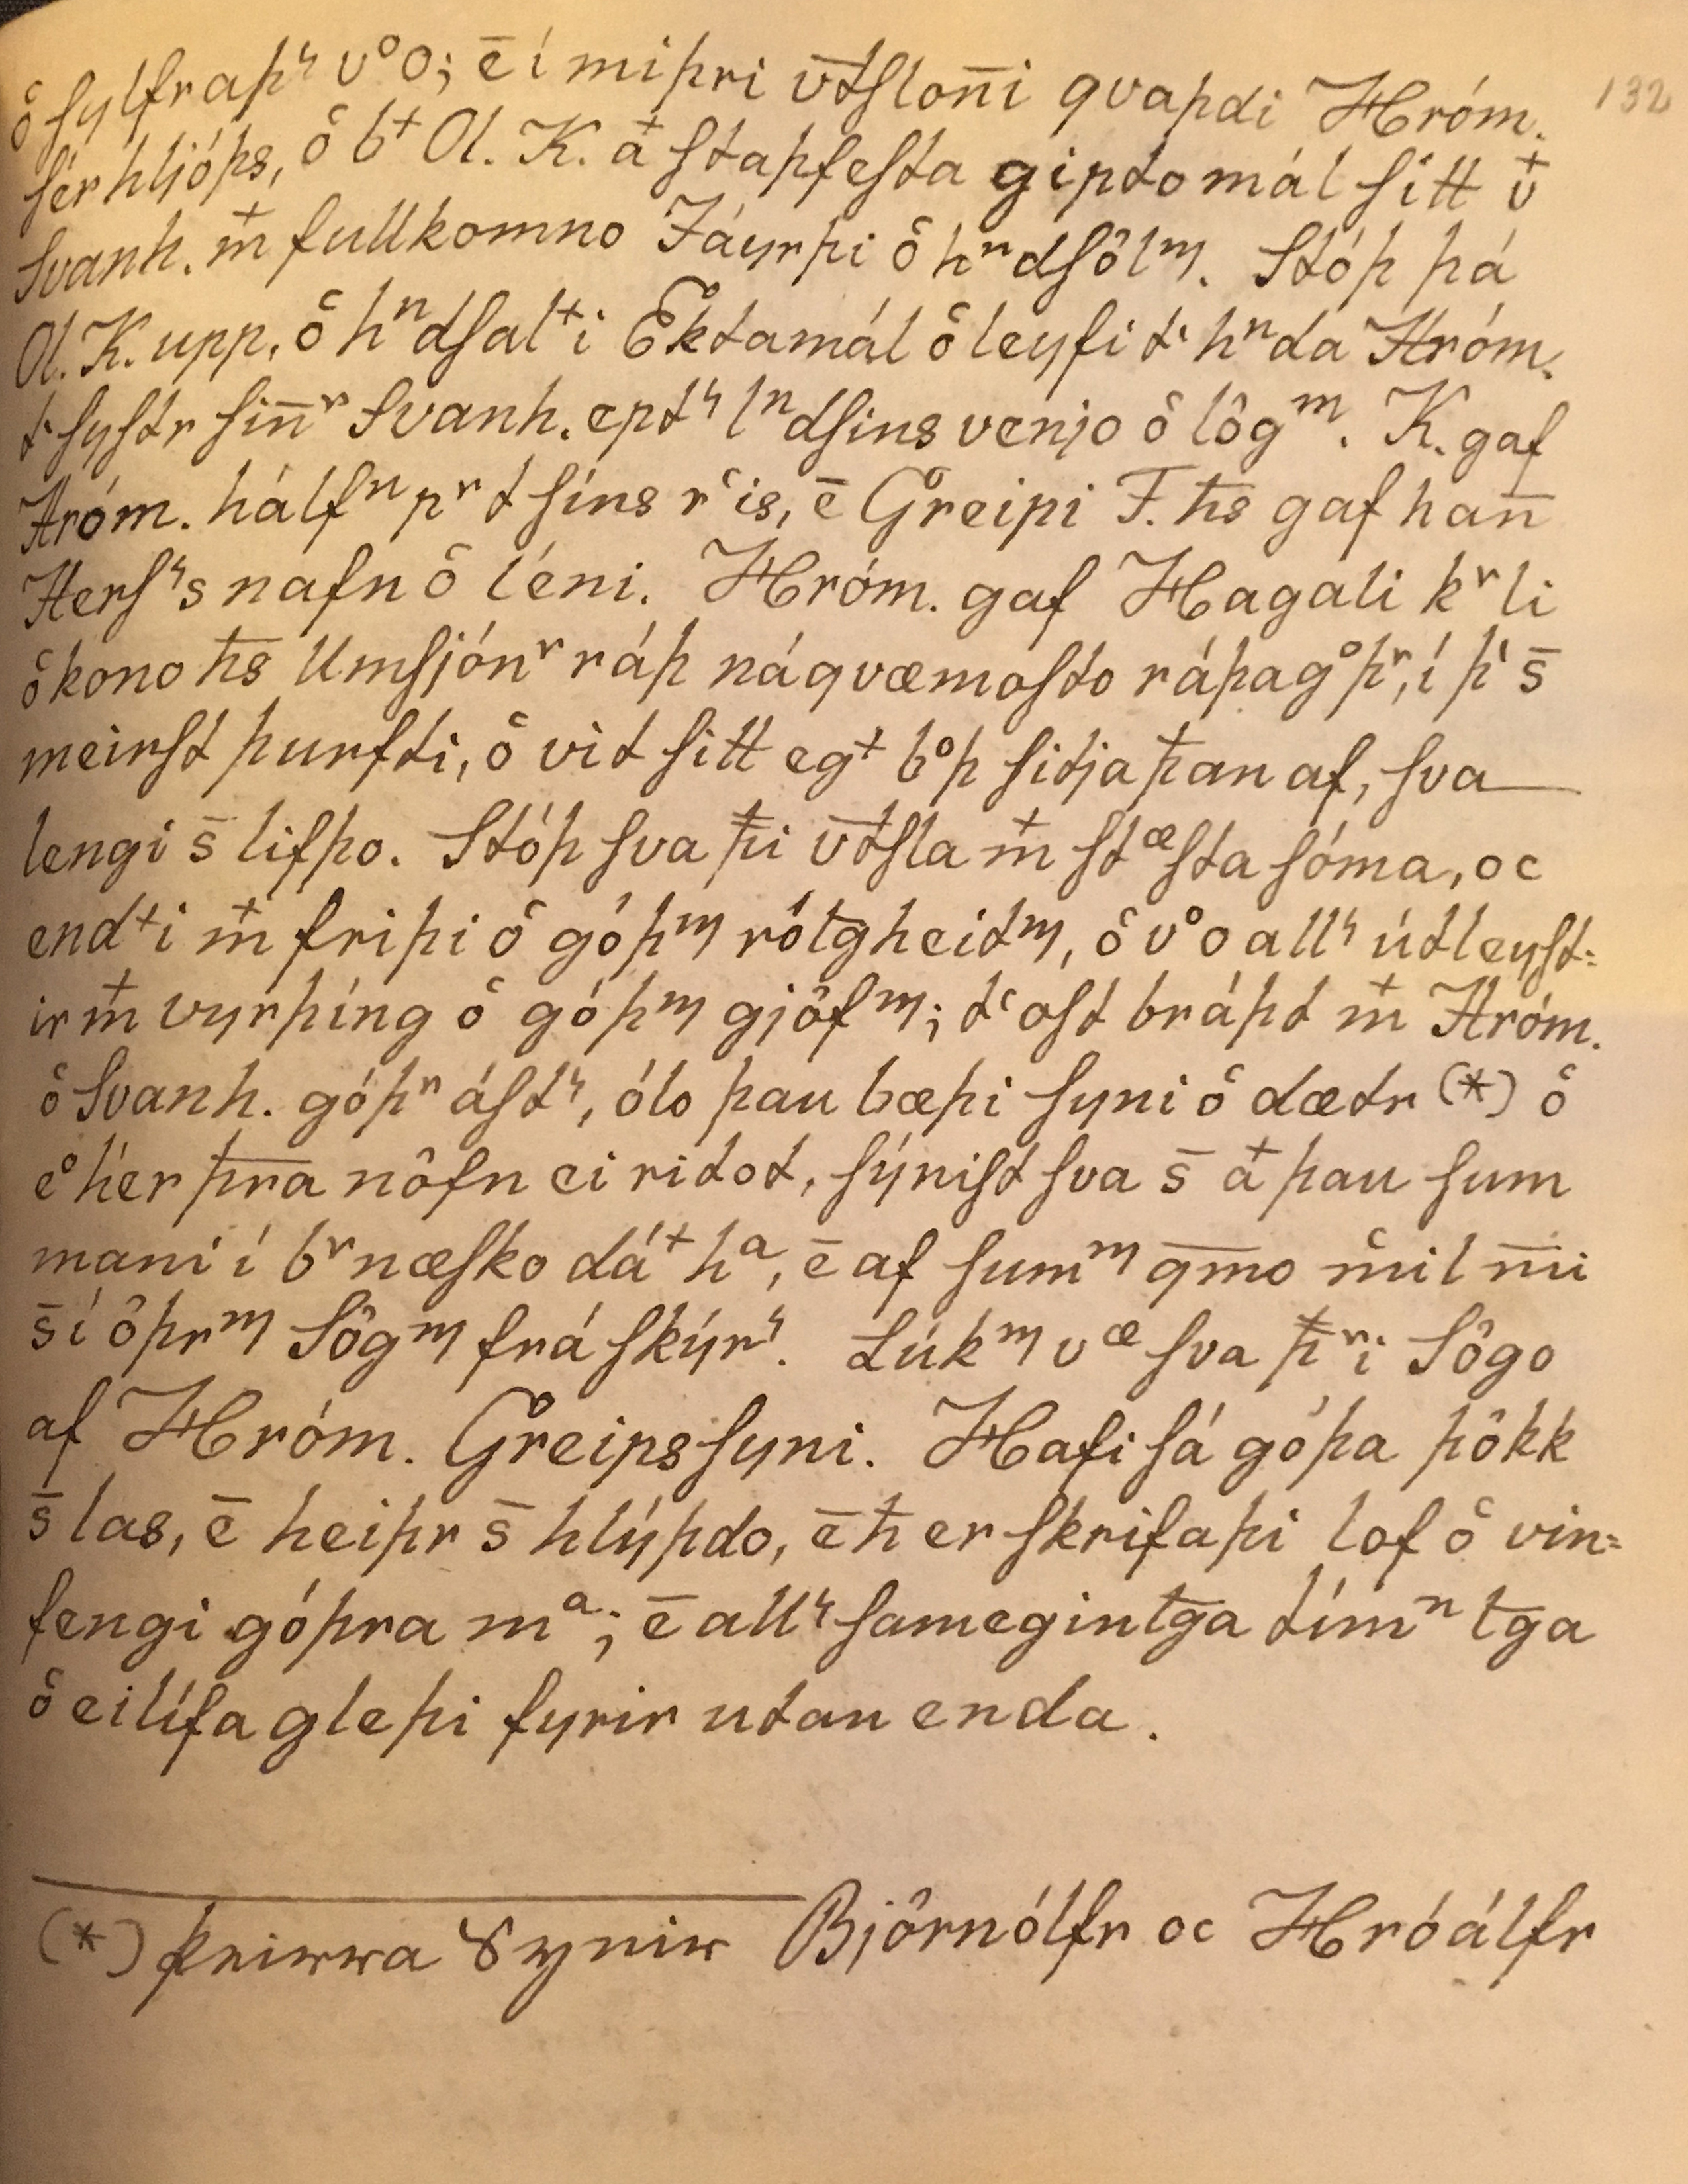 132
ô sylfraþꝛ vͦo; ē í miþri v̄tſlon̄i qvaþdi Hróm.
ſér hljóþs, ô b⁺ Ol. K. a⁺ ſtaþfeſta giptomál ſitt v⁺
Svanh. m⁺ fullkomno Jáyrþi ô hⁿdſôlᵐ. Stóþ þá
Ol. K. upp, ô hⁿdſal⁺i Ektamál ô leyfi tⁱ hⁿda Hróm.
tⁱ ſyſtr ſin̄ʳ Svanh. eptꝛ lⁿdſins venjo ô lôgᵐ. K. gaf
Hróm. hálfⁿ pʳt ſíns rͨis, ē Greipi F. h̄s gaf han̄
Herſꝛs nafn ô léni. Hróm. gaf Hagali kʳli
ô kono h̄s Umſjónʳ ráþ náqvæmoſto ráþagͦþʳ, í þⁱ s̄
meirſt þurfti, ô vit ſitt eg⁺ bͦþ ſitja þ̄an af, ſva
lengi s̄ lifþo. Stóþ ſva þ̄i v̄tſla m⁺ ſtᵆſta ſóma, oc
end⁺i m⁺ friþi ô góþᵐ rôl̄gheitᵐ, ô vͦo allꝛ útleyſt=
ir m⁺ vyrþíng ô góþᵐ gjôfᵐ; tͨoſt bráþt m⁺ Hróm.
ô Svanh. góþʳ áſtꝛ, ólo þau bæþi ſyni ô dætr (*) ô
eͦ hér þ̄ra nôfn ei ritot, ſýniſt ſva s̄ a⁺ þau ſum
mani í bʳnæſko dá⁺ hᵃ, ē af ſumᵐ qm̄o mͨil m̄i
s̄ í ôþrᵐ Sôgᵐ frá ſkýrꝛ. Lúkᵐ vᵆ ſva þ̄ʳi Sôgo
af Hróm. Greipsſyni. Hafi ſá góþa þôkk
s̄ las, ē heiþr s̄ hlýþdo, ē h̄ er ſkrifaþi lof ô vin=
fengi góþra mᵃ; ē allꝛ ſamegintḡa tímⁿtḡa
ô eilífa gleþi fyrir utan enda.
(*) þeirra Synir Bjôrnólfr oc Hróálfr